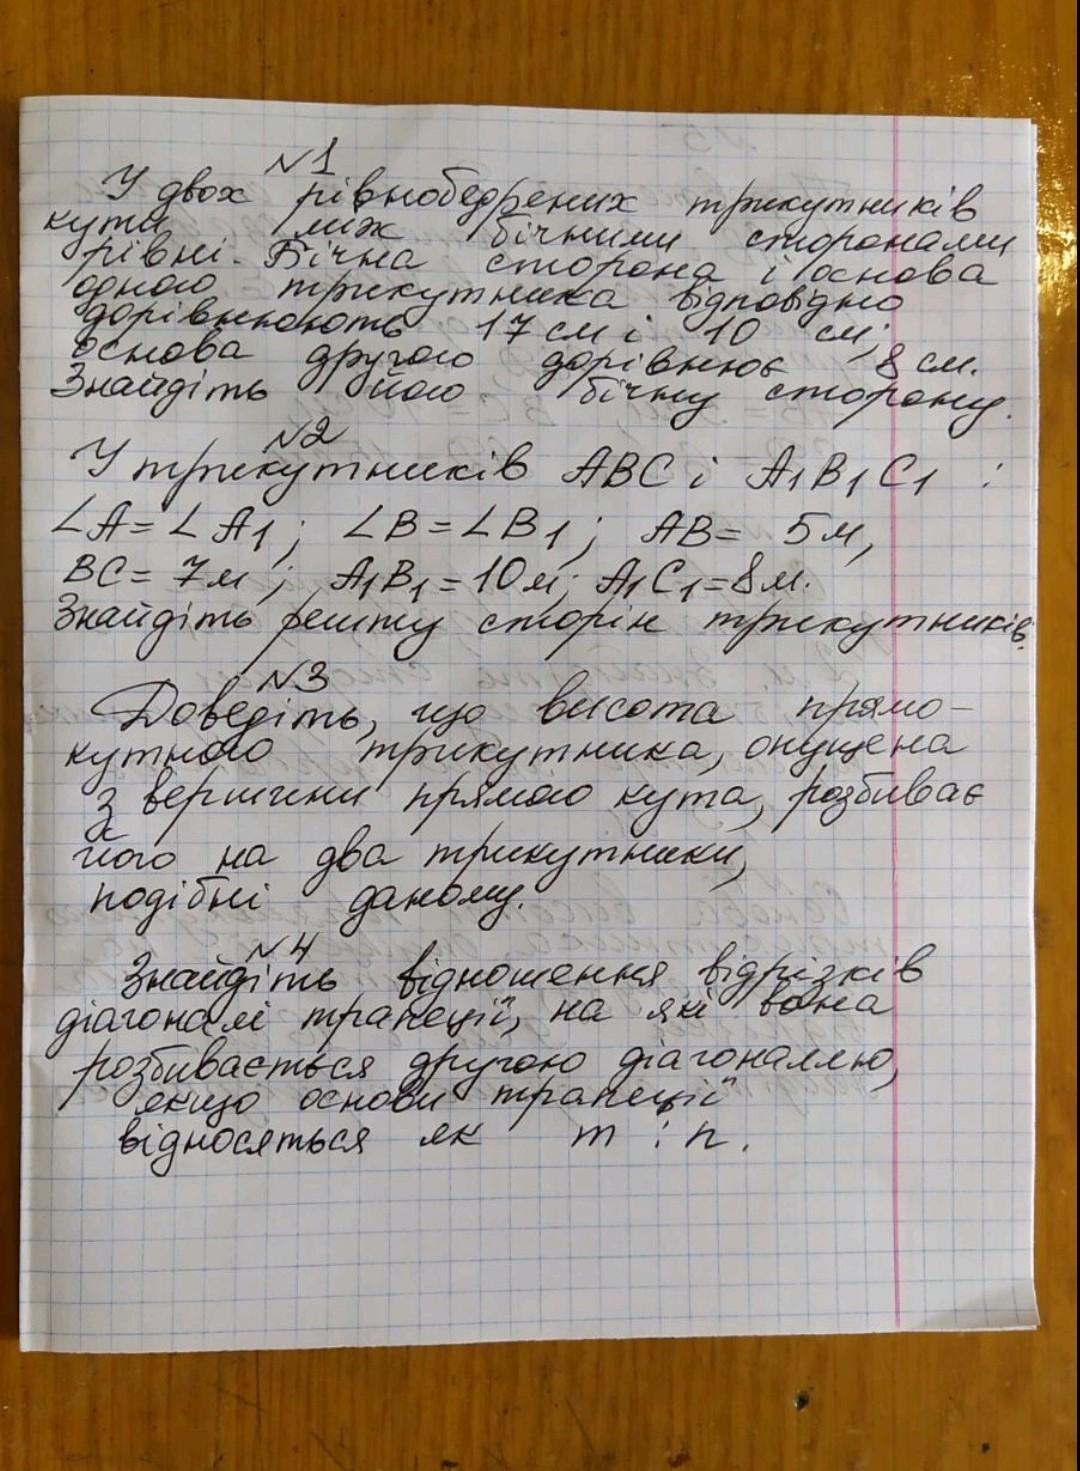 №1
У двох рівнобедрених трикутників
кути між бічними сторонами
рівні. Бічна сторона і основа
одного трикутника відповідно
дорівнюють 17 см і 10 см;
основа другого дорівнює 8 см.
Знайдіть його бічну сторону.
№2
У трикутників ABC і A₁B₁C₁ :
∠A = ∠A₁; ∠B = ∠B₁; AB = 5м,
BC = 7м; A₁B₁ = 10м; A₁C₁ = 8м.
Знайдіть решту сторін трикутників.
№3
Доведіть, що висота прямо-
кутного трикутника, опущена
з вершини прямого кута, розбиває
його на два трикутники,
подібні даному.
№4
Знайдіть відношення відрізків
діагоналі трапеції, на які вона
розбивається другою діагоналлю,
якщо основи трапеції
відносяться як m : n.